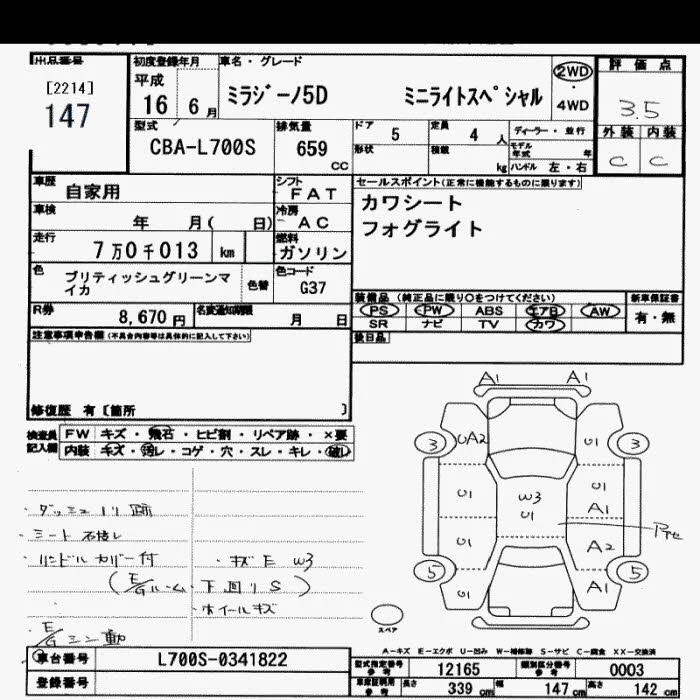 出品番号
[2214]
147
初度登録年月
平成
16 6月
車名・グレード
ミラジーノ5D ミニライトスペシャル
2WD
・
4WD
評価点
3.5
外装 内装
C C
型式
CBA-L700S
排気量
659 CC
ドア 5
定員 4 人
ディーラー・並行
形状
積載 kg
モデル年式 年
ハンドル 左・右
車歴 自家用
シフト FAT
車検 年 月( 日)
冷房 AC
走行 7万0千013 km
燃料 ガソリン
色 ブリティッシュグリーンマイカ
色替
色コード G37
セールスポイント(正常に機能するものに限ります)
カワシート
フォグライト
R券 8,670円
名変通知期限 月 日
装備品 (純正品に限り○をつけてください)
PS PW ABS エアB AW
SR ナビ TV カワ
新車保証書
有・無
後日品
注意事項申告欄(不具合内容等は具体的に記入して下さい)
修復歴 有〔箇所 〕
検査員記入欄
FW キズ・飛石・ヒビ割・リペア跡・×要
内装 キズ・汚レ・コゲ・穴・スレ・キレ・破レ
A1 A1
3 UA2 U1 3
U1 W3 U1 U1 A1
U1 A2
5 U1 A1 5
・キズ E W3
下回りS)
・ホイールキズ
スペア
A-キズ E-エクボ U-凹み W-補修跡 S-サビ C-腐食 XX-交換済
車台番号 L700S-0341822
登録番号
型式指定番号 参考 12165
類別区分番号 参考 0003
車庫証明用 参考 長さ 339 cm 幅 147 cm 高さ 142 cm